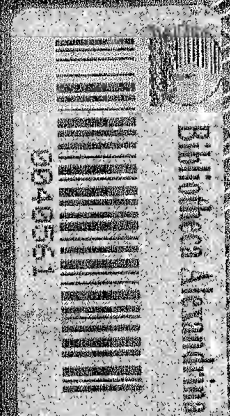 Bibliotheca Alexandrina
0040561